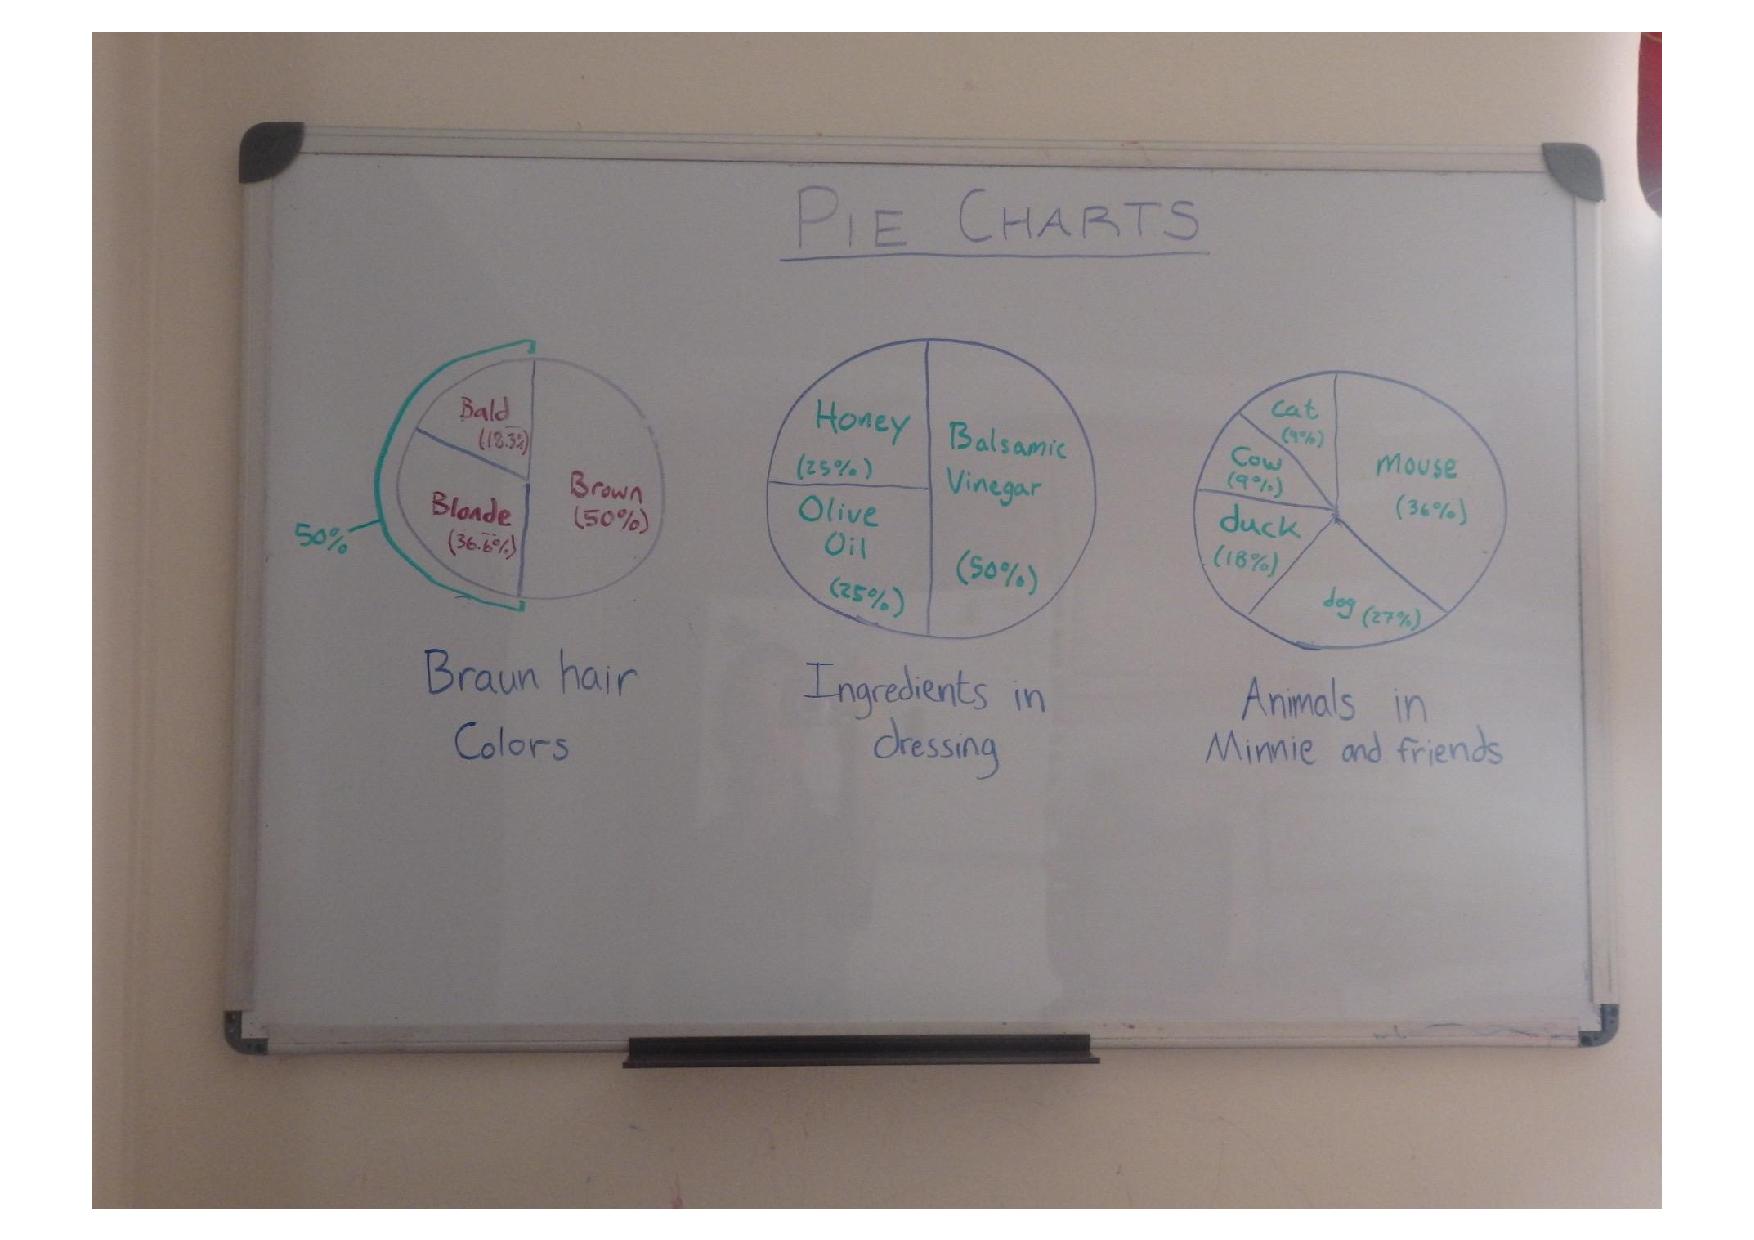 PIE CHARTS
50%
Bald
(18.3%)
Blonde
(36.6%)
Brown
(50%)
Braun hair
Colors
Honey
(25%)
Olive
Oil
(25%)
Balsamic
Vinegar
(50%)
Ingredients in
dressing
Cat
(9%)
Cow
(9%)
duck
(18%)
dog (27%)
mouse
(36%)
Animals in
Minnie and friends